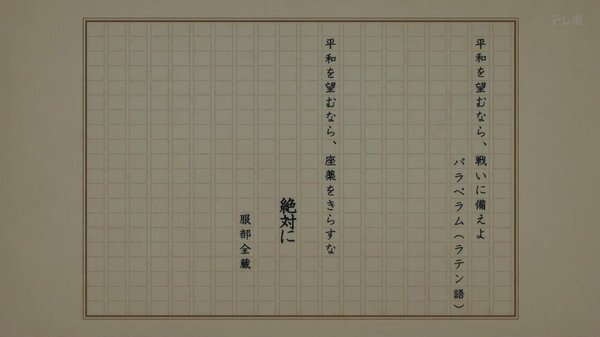 平和を望むなら、戦いに備えよ
パラベラム(ラテン語)
平和を望むなら、座薬をきらすな
絶対に
服部全蔵
テレ東